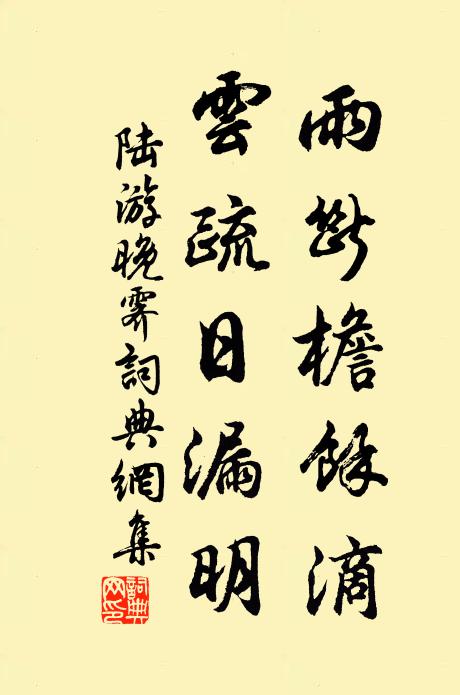 雨斷檐餘滴
雲疏日漏明
陸游晚霽詞典網集
詞典網印